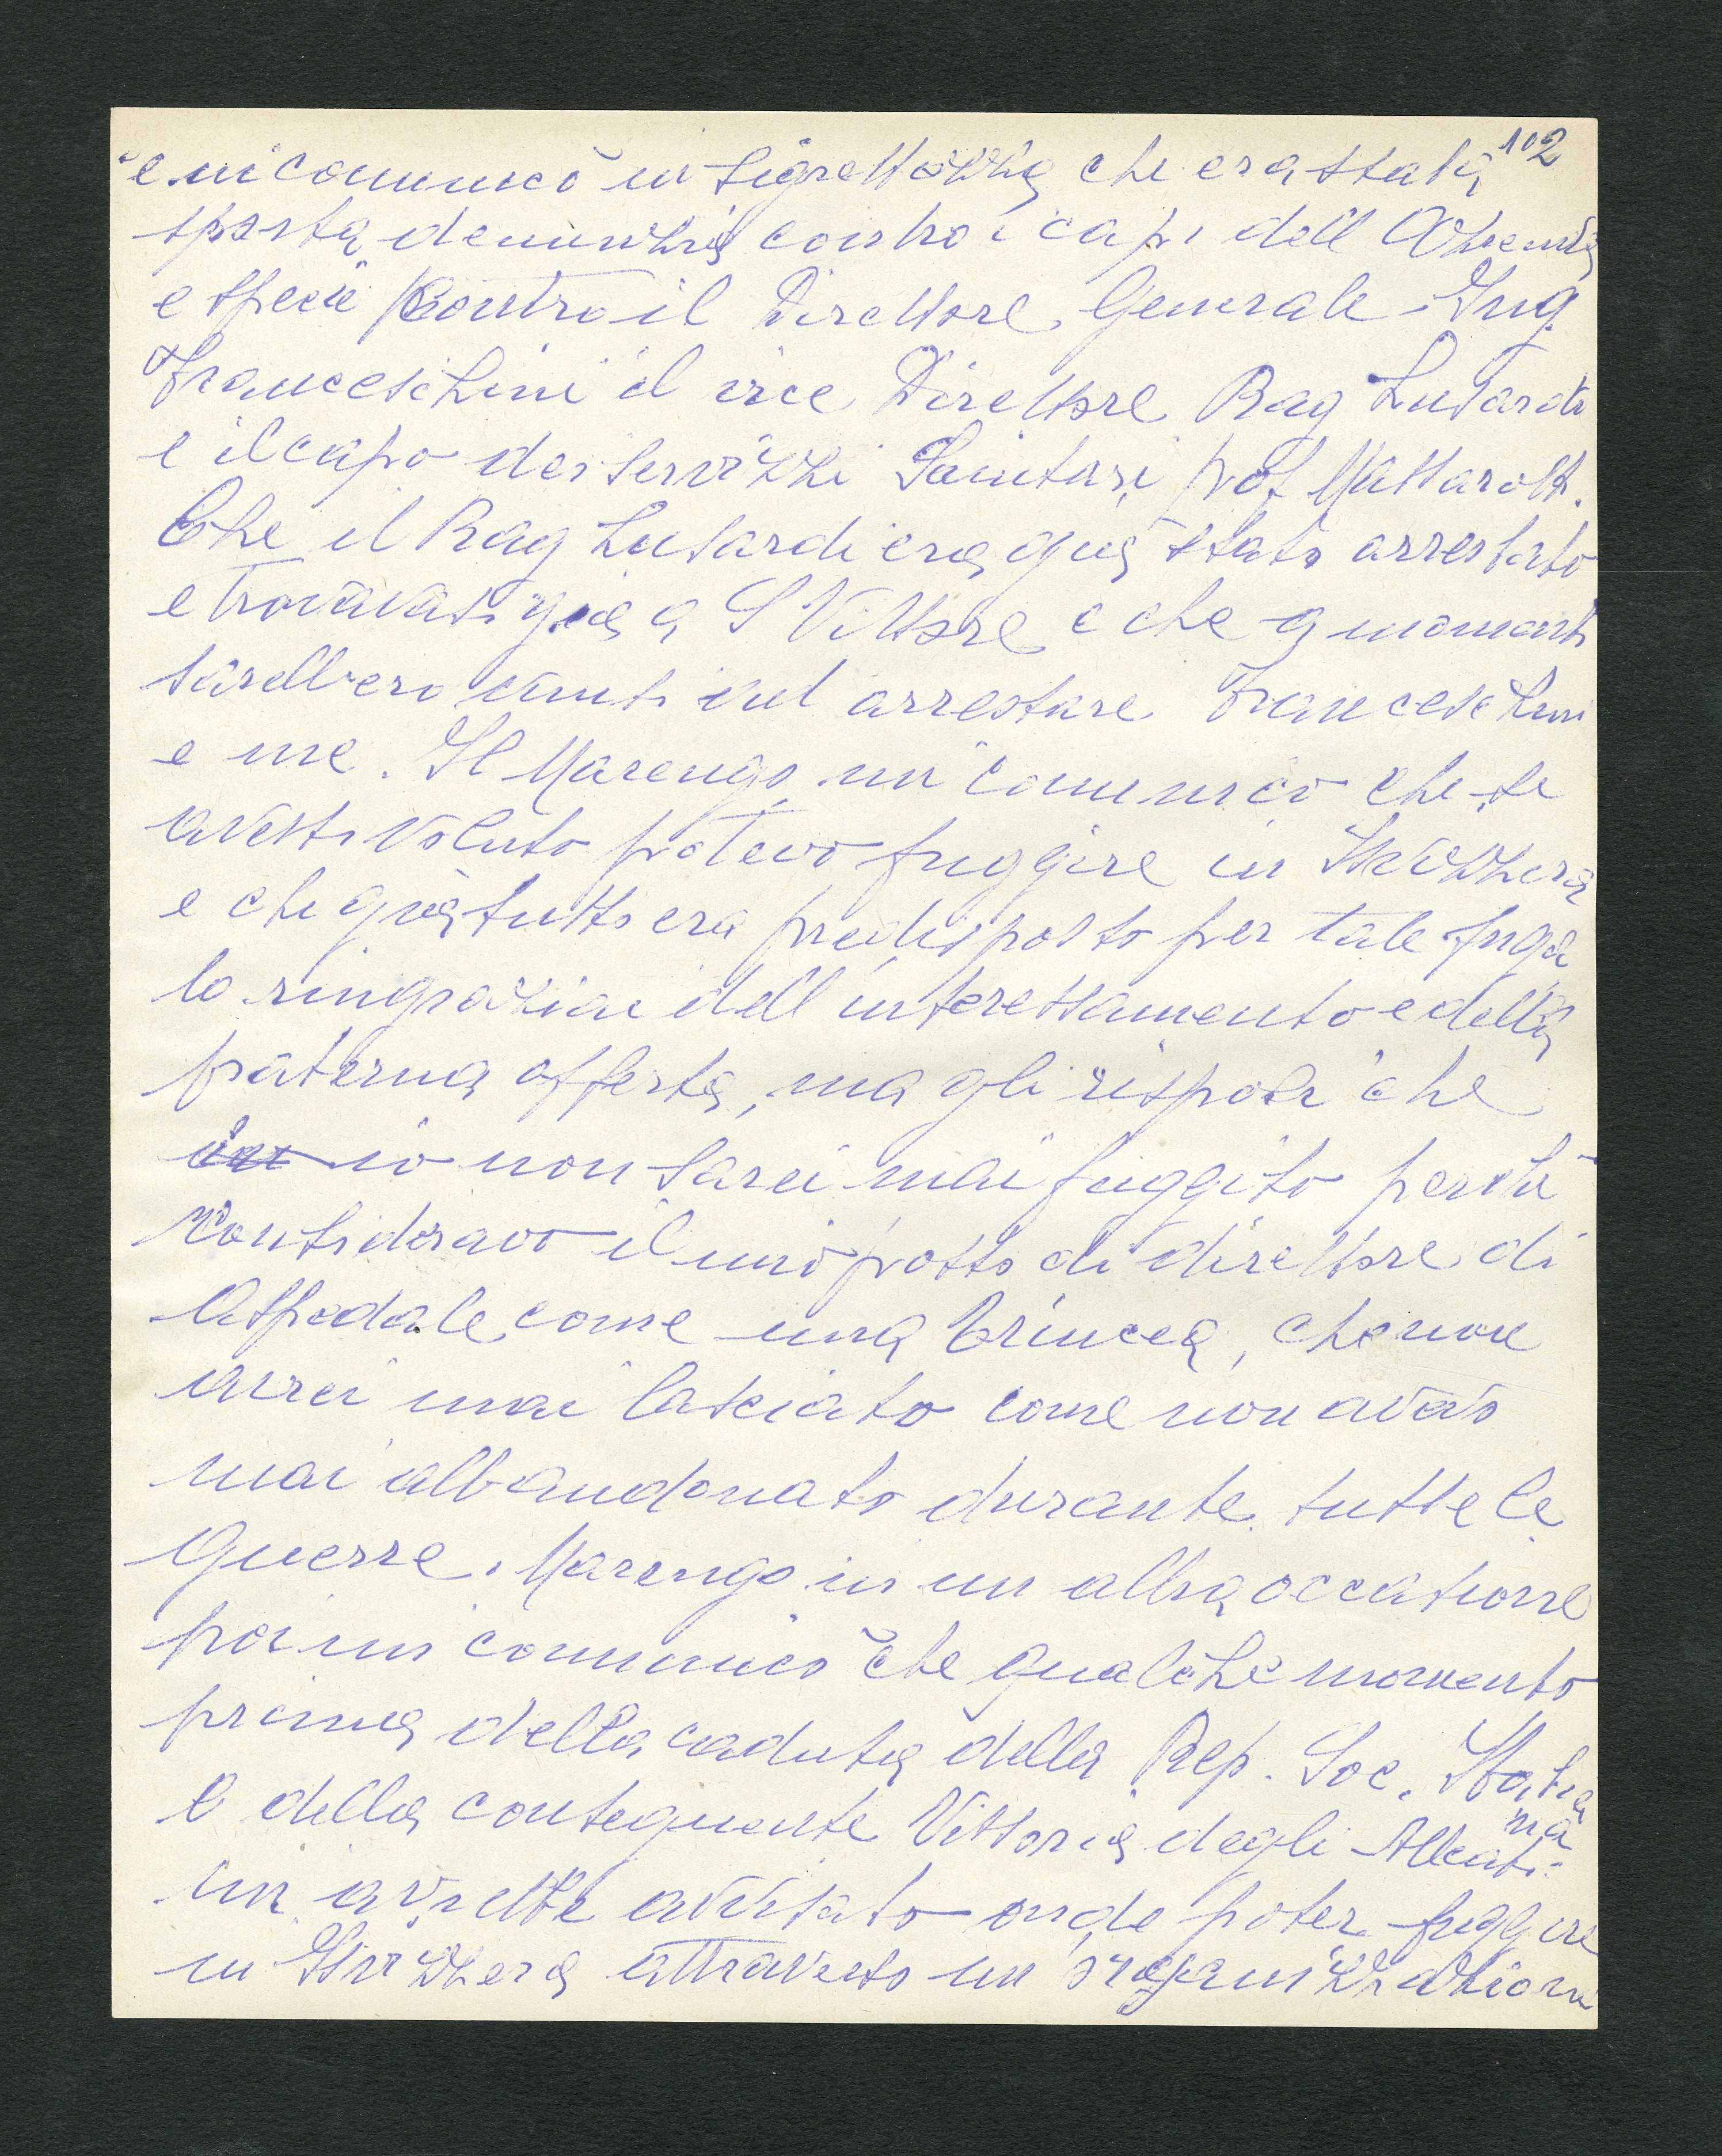 102
e mi comunicò in segrettezza che era stata
sporta denunzia contro i capi dell Azienda
e specie contro il Direttore Generale Ing
Franceschini il vice Direttore Rag Lusardi
e il capo dei servizzi Sanitari prof Mattarotti.
Che il Rag Lusardi era già stato arrestato
e trovavasi già a S Vittore e che a momenti
sarebbero venuti ad arrestare Franceschini
e me. Il Marengo mi comunicò che se
avessi voluto potevo fuggire in Svizzera
e che già tutto era predisposto per tale fuga
lo ringraziai dell interessamento e della
fraterna offerta, ma gli risposi che
io non sarei mai fuggito perché
consideravo il mio posto di direttore di
Ospedale come una trincea, che non
avrei mai lasciato come non avevo
mai abbandonato durante tutte le
Guerre. Marengo in un altra occasione
poi mi comunicò che qualche momento
prima della caduta della Rep. Soc. Italia
na
e della conseguente Vittoria degli Alleati
mi avrebbe avvisato onde poter fuggire
in Svizzera attraverso un organizzazione